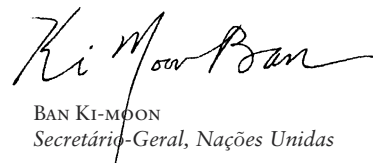 Ki Moon Ban
BAN KI-MOON
Secretário-Geral, Nações Unidas